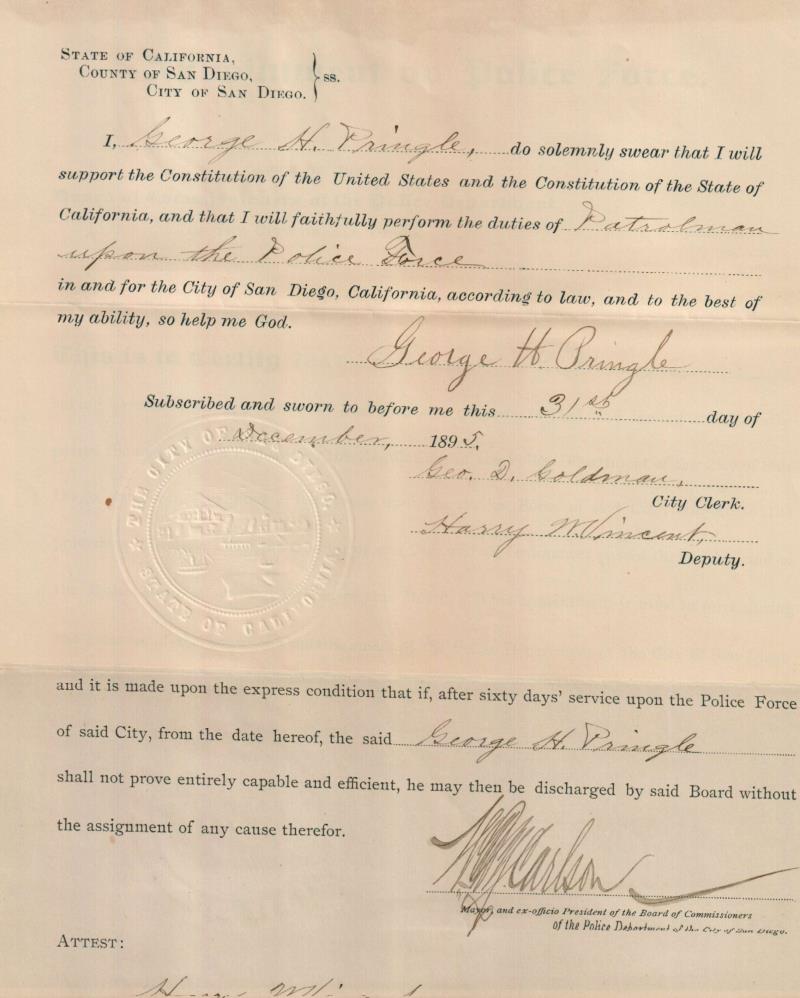 STATE OF CALIFORNIA,
COUNTY OF SAN DIEGO, } ss.
CITY OF SAN DIEGO.
I, George H. Pringle, do solemnly swear that I will
support the Constitution of the United States and the Constitution of the State of
California, and that I will faithfully perform the duties of Patrolman
upon the Police Force
in and for the City of San Diego, California, according to law, and to the best of
my ability, so help me God.
George H Pringle
Subscribed and sworn to before me this 31st day of
December, 1895.
Geo. D. Goldman,
City Clerk.
Harry W Vincent,
Deputy.
THE CITY OF SAN DIEGO.
STATE OF CALIFORNIA.
and it is made upon the express condition that if, after sixty days' service upon the Police Force
of said City, from the date hereof, the said George H. Pringle
shall not prove entirely capable and efficient, he may then be discharged by said Board without
the assignment of any cause therefor.
Carlson
Mayor, and ex-officio President of the Board of Commissioners
of the Police Department of the City of San Diego.
ATTEST: